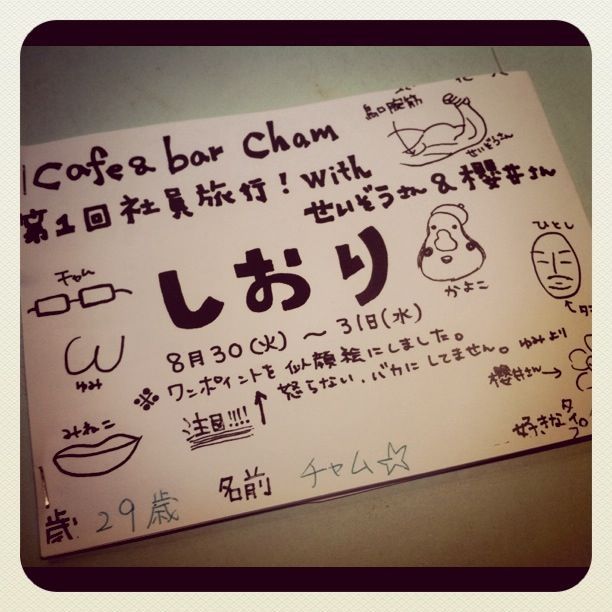 Cafe & bar Cham
第1回社員旅行! with
せいぞうさん & 櫻井さん
せいぞうさん
チャム
しおり
かよこ
ひとし
ゆみ
8月30(火) 〜 31日(水)
※ ワンポイントを似顔絵にしました。
怒らない.バカにしてません。ゆみより
注目!!!!
みねこ
櫻井さん→
好きなタイプ
歳: 29歳
名前 チャム☆